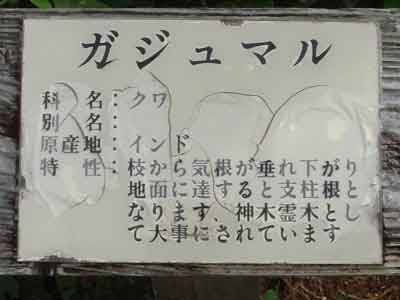 ガジュマル
科　名：クワ
別　名：
原産地：インド
特　性：枝から気根が垂れ下がり
地面に達すると支柱根と
なります、神木霊木とし
て大事にされています